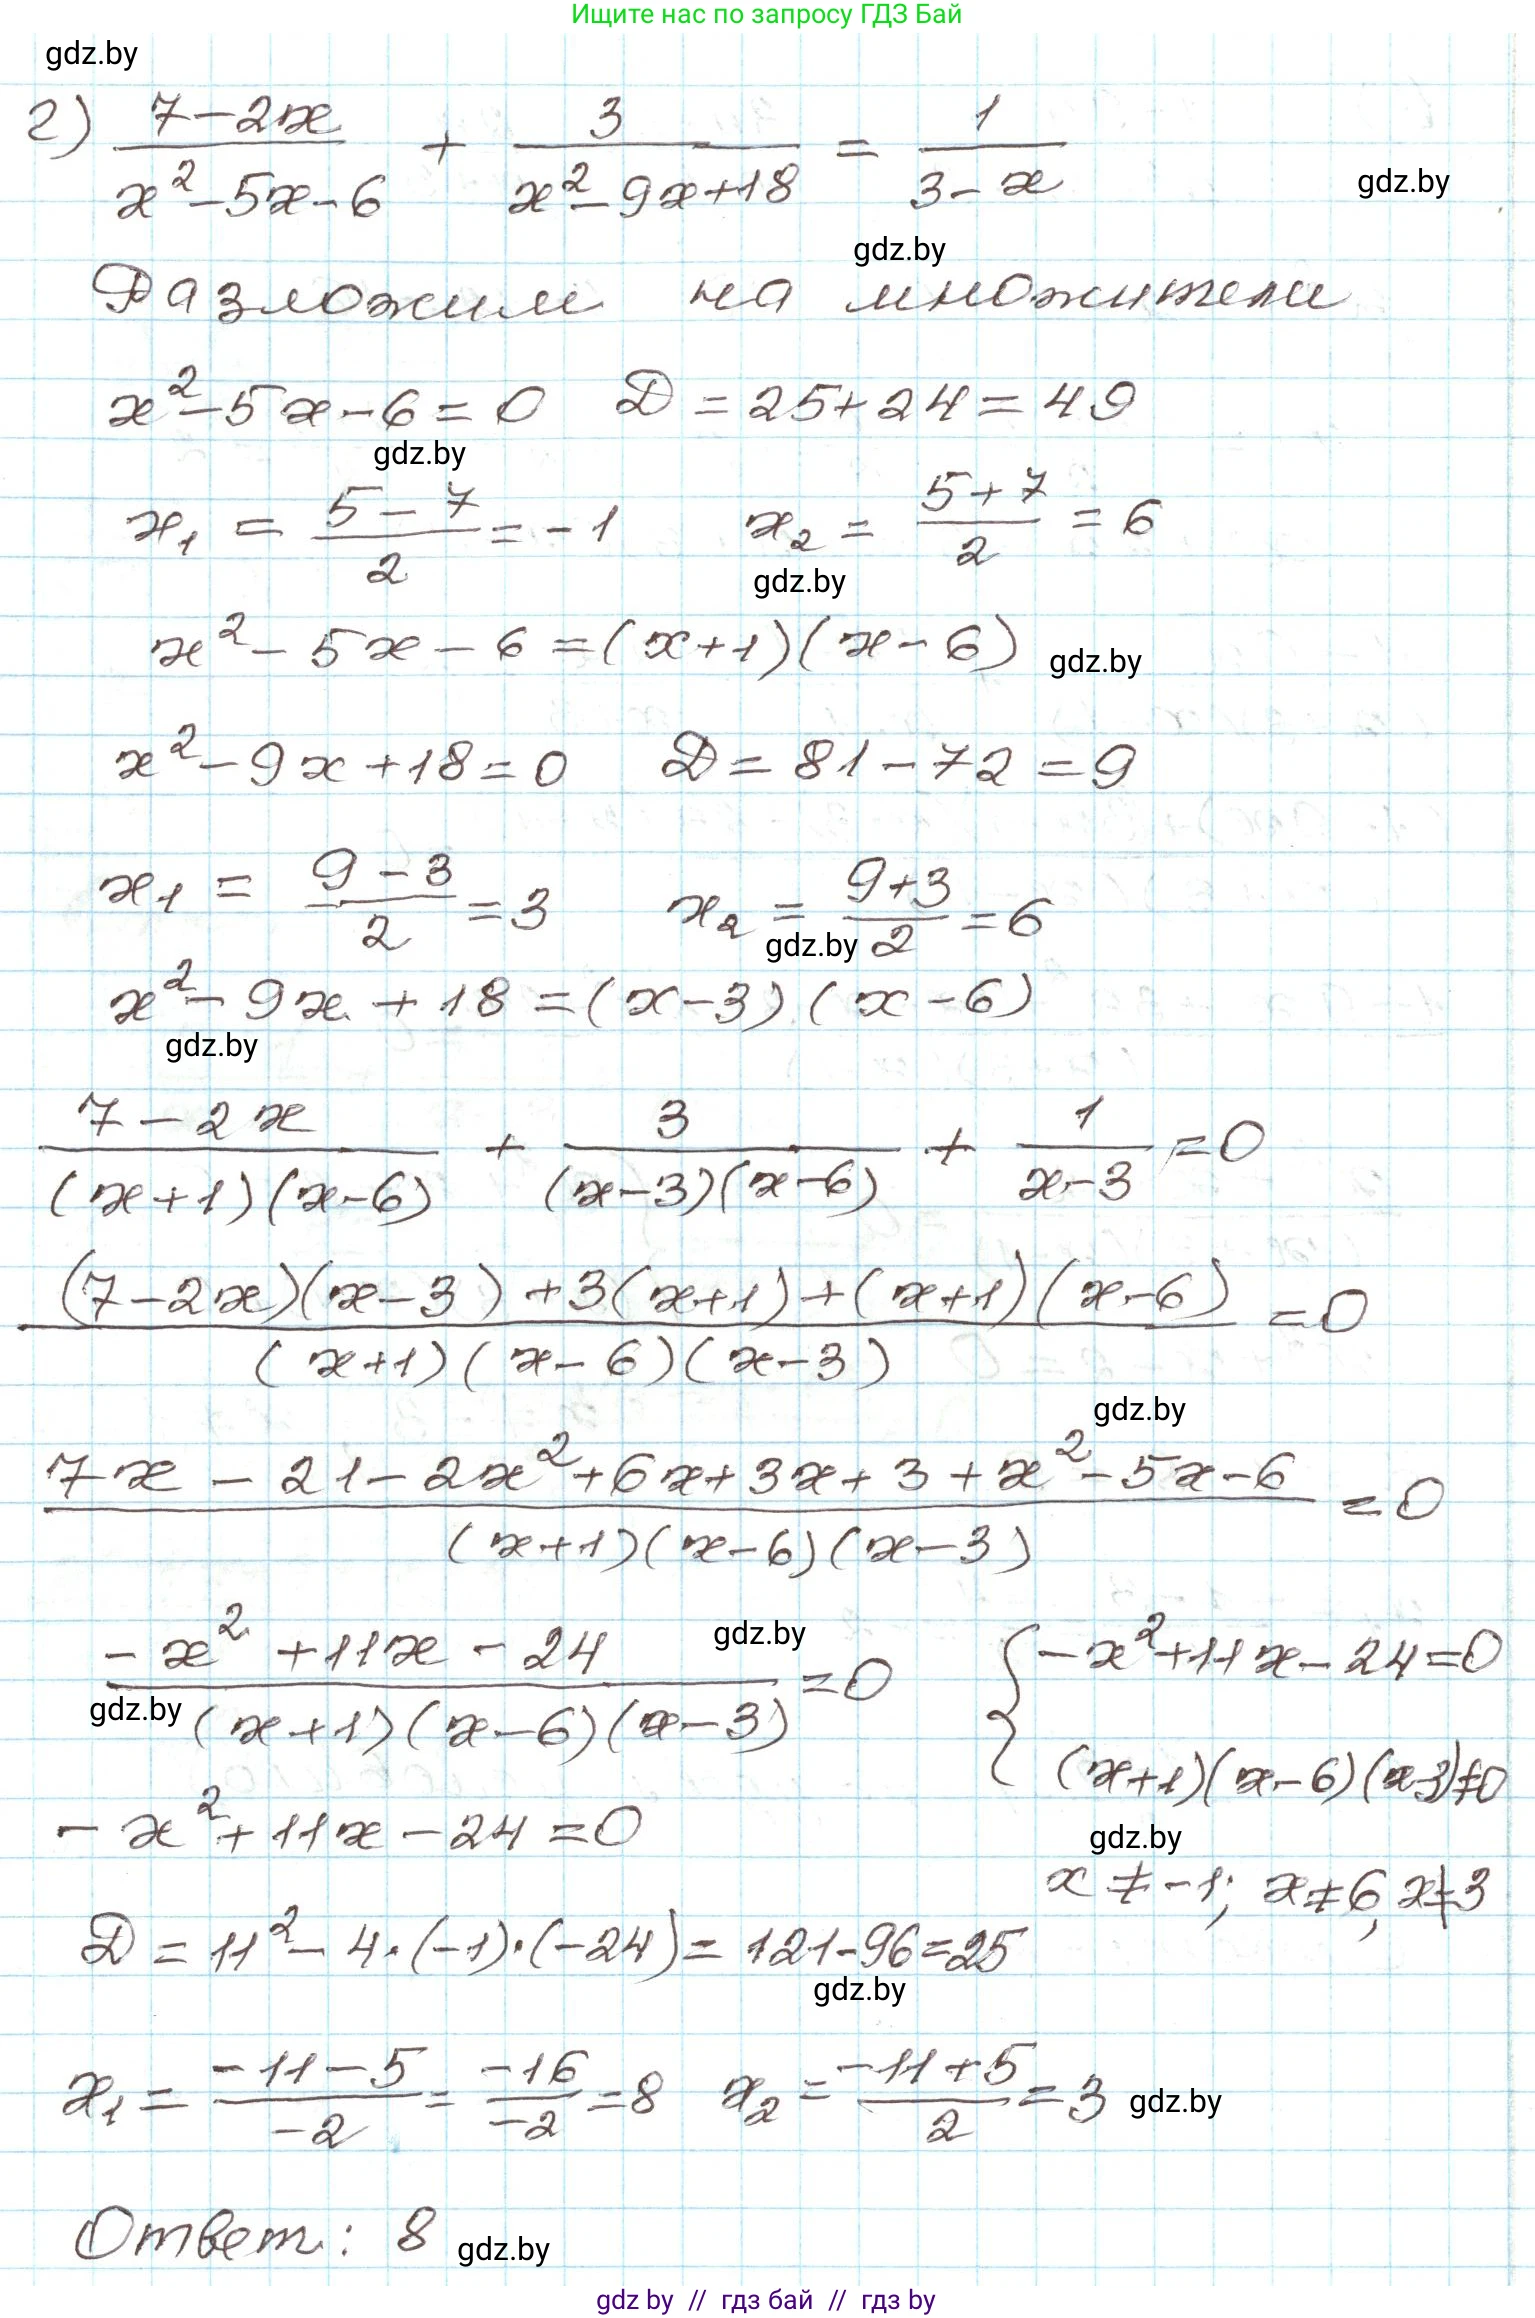 Ищите нас по запросу ГДЗ Бай
gdz.by
г) (7-2x)/(x²-5x-6) + 3/(x²-9x+18) = 1/(3-x)
gdz.by
gdz.by
Разложим на множители
x²-5x-6=0 D=25+24=49
gdz.by
x₁ = (5-7)/2 = -1 x₂ = (5+7)/2 = 6
gdz.by
x²-5x-6=(x+1)(x-6) gdz.by
x²-9x+18=0 D=81-72=9
x₁ = (9-3)/2 = 3 x₂ = (9+3)/2 = 6
gdz.by
x²-9x+18=(x-3)(x-6)
gdz.by
(7-2x)/((x+1)(x-6)) + 3/((x-3)(x-6)) + 1/(x-3) = 0
((7-2x)(x-3)+3(x+1)+(x+1)(x-6))/((x+1)(x-6)(x-3)) = 0
gdz.by
(7x-21-2x²+6x+3x+3+x²-5x-6)/((x+1)(x-6)(x-3)) = 0
gdz.by
(-x²+11x-24)/((x+1)(x-6)(x-3)) = 0 { -x²+11x-24=0
gdz.by
(x+1)(x-6)(x-3)≠0
-x²+11x-24=0
gdz.by
x≠-1; x≠6, x≠3
D=11²-4·(-1)·(-24)=121-96=25
gdz.by
x₁ = (-11-5)/(-2) = (-16)/(-2) = 8 x₂ = (-11+5)/2 = 3 gdz.by
Ответ: 8 gdz.by
gdz by // гдз бай // гдз by